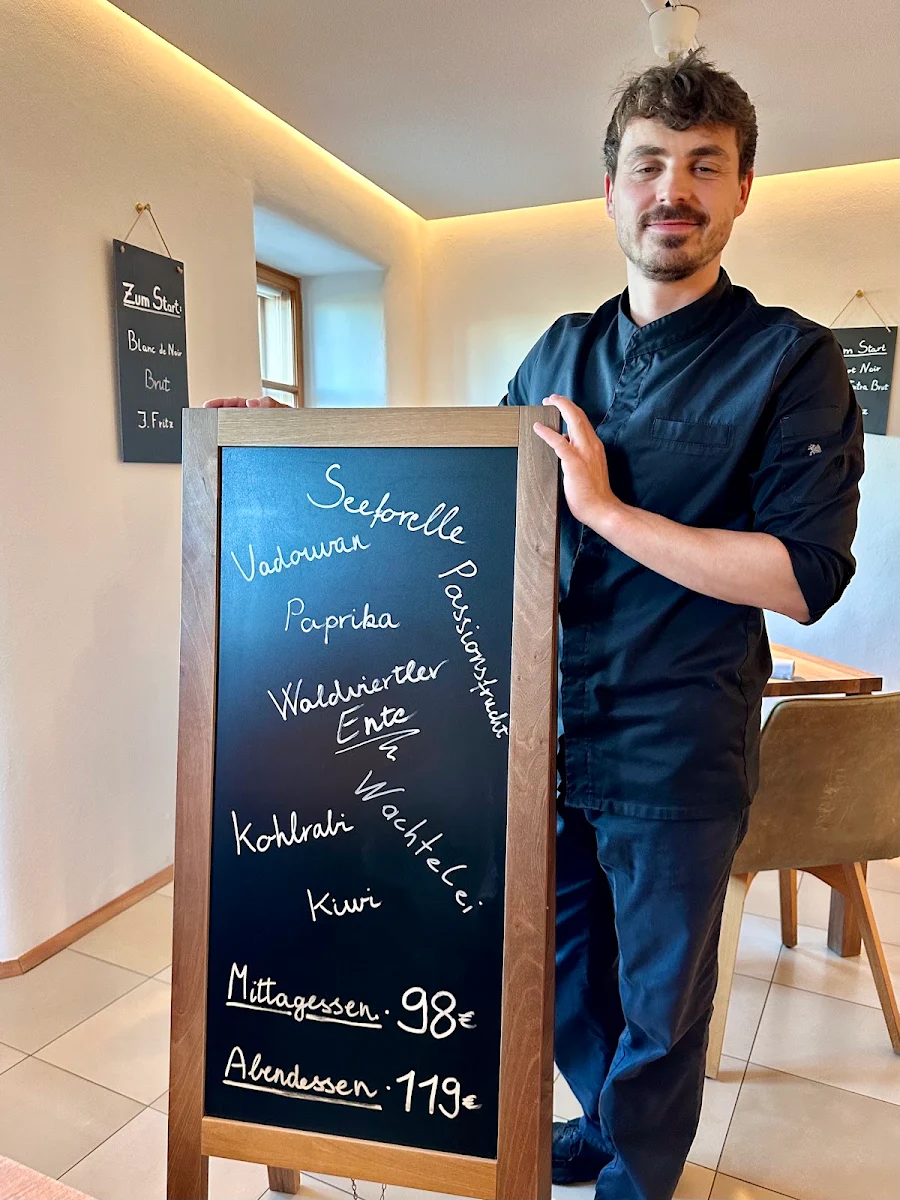 Zum Start:
Blanc de Noir
Brut
J. Fritz
Seeforelle
Vadouvan
Passionsfrucht
Paprika
Waldviertler
Ente
Wachtelei
Kohlrabi
Kiwi
Mittagessen · 98€
Abendessen · 119€
m Start
Noir
Extra Brut